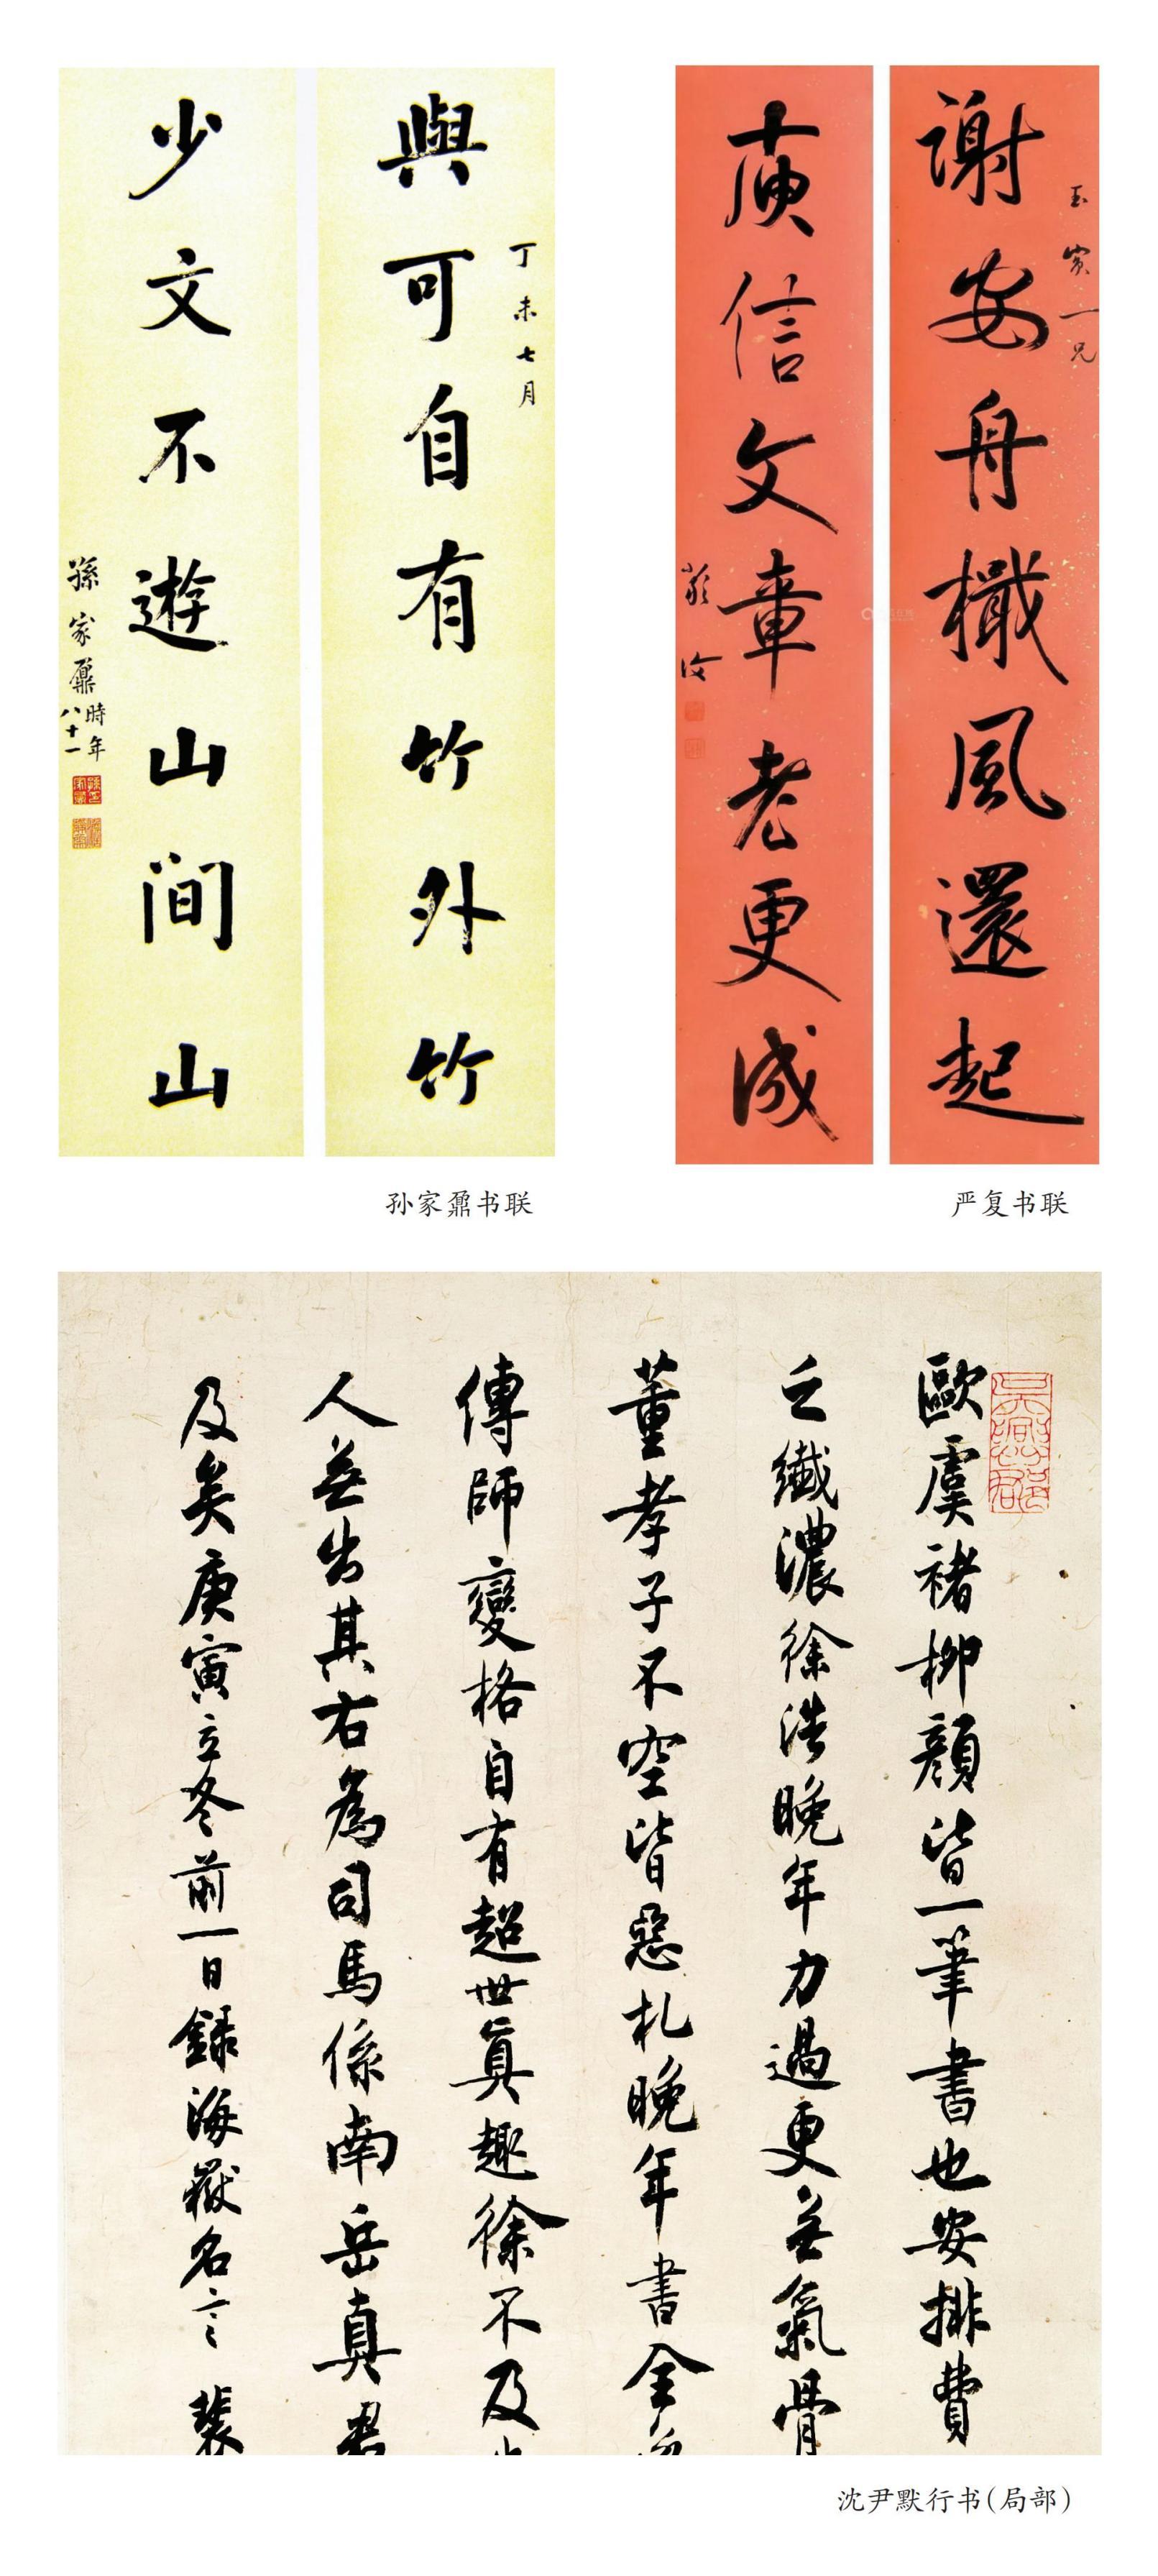 謝安舟檝風還起
玉賓一兄
庾信文章老更成
嚴復
與可自有竹外竹
丁未七月
少文不遊山間山
孫家鼐時年八十一
孙家鼐书联
严复书联
歐虞褚柳顏皆一筆書也安排費
之纖濃徐浩晚年力過更無氣骨
董孝子不空皆惡札晚年書全
傳師變格自有超世真趣徐不及
人無出其右為司馬係南岳真君
及矣庚寅立冬前一日錄海嶽名言 裴
沈尹默行书(局部)